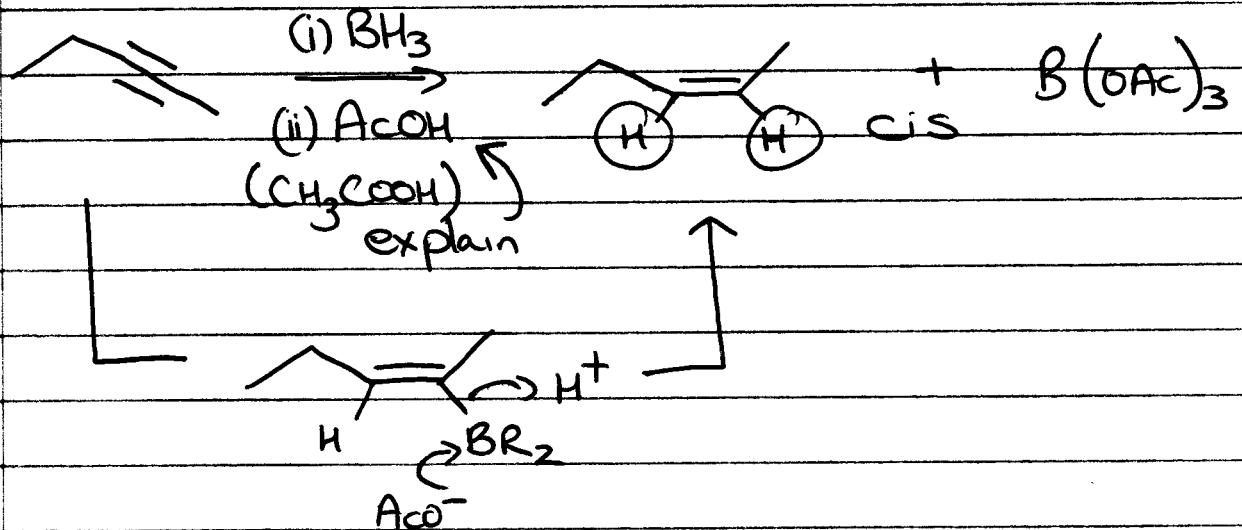 (i) BH3
(ii) AcOH
(CH3COOH)
explain
H H cis + B(OAc)3
H
BR2
H+
AcO-